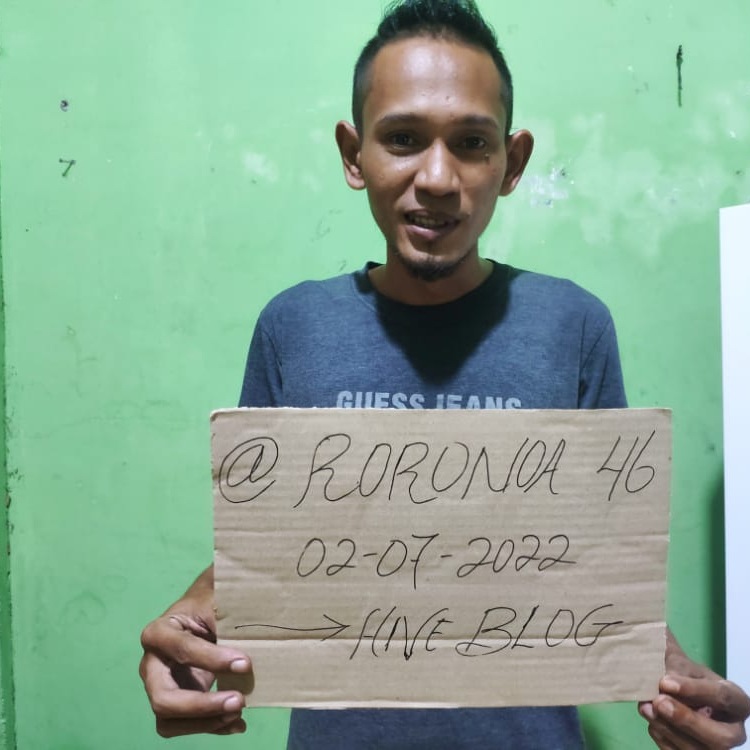 GUESS JEANS
@ RORONOA 46
02-07-2022
→ HIVE BLOG